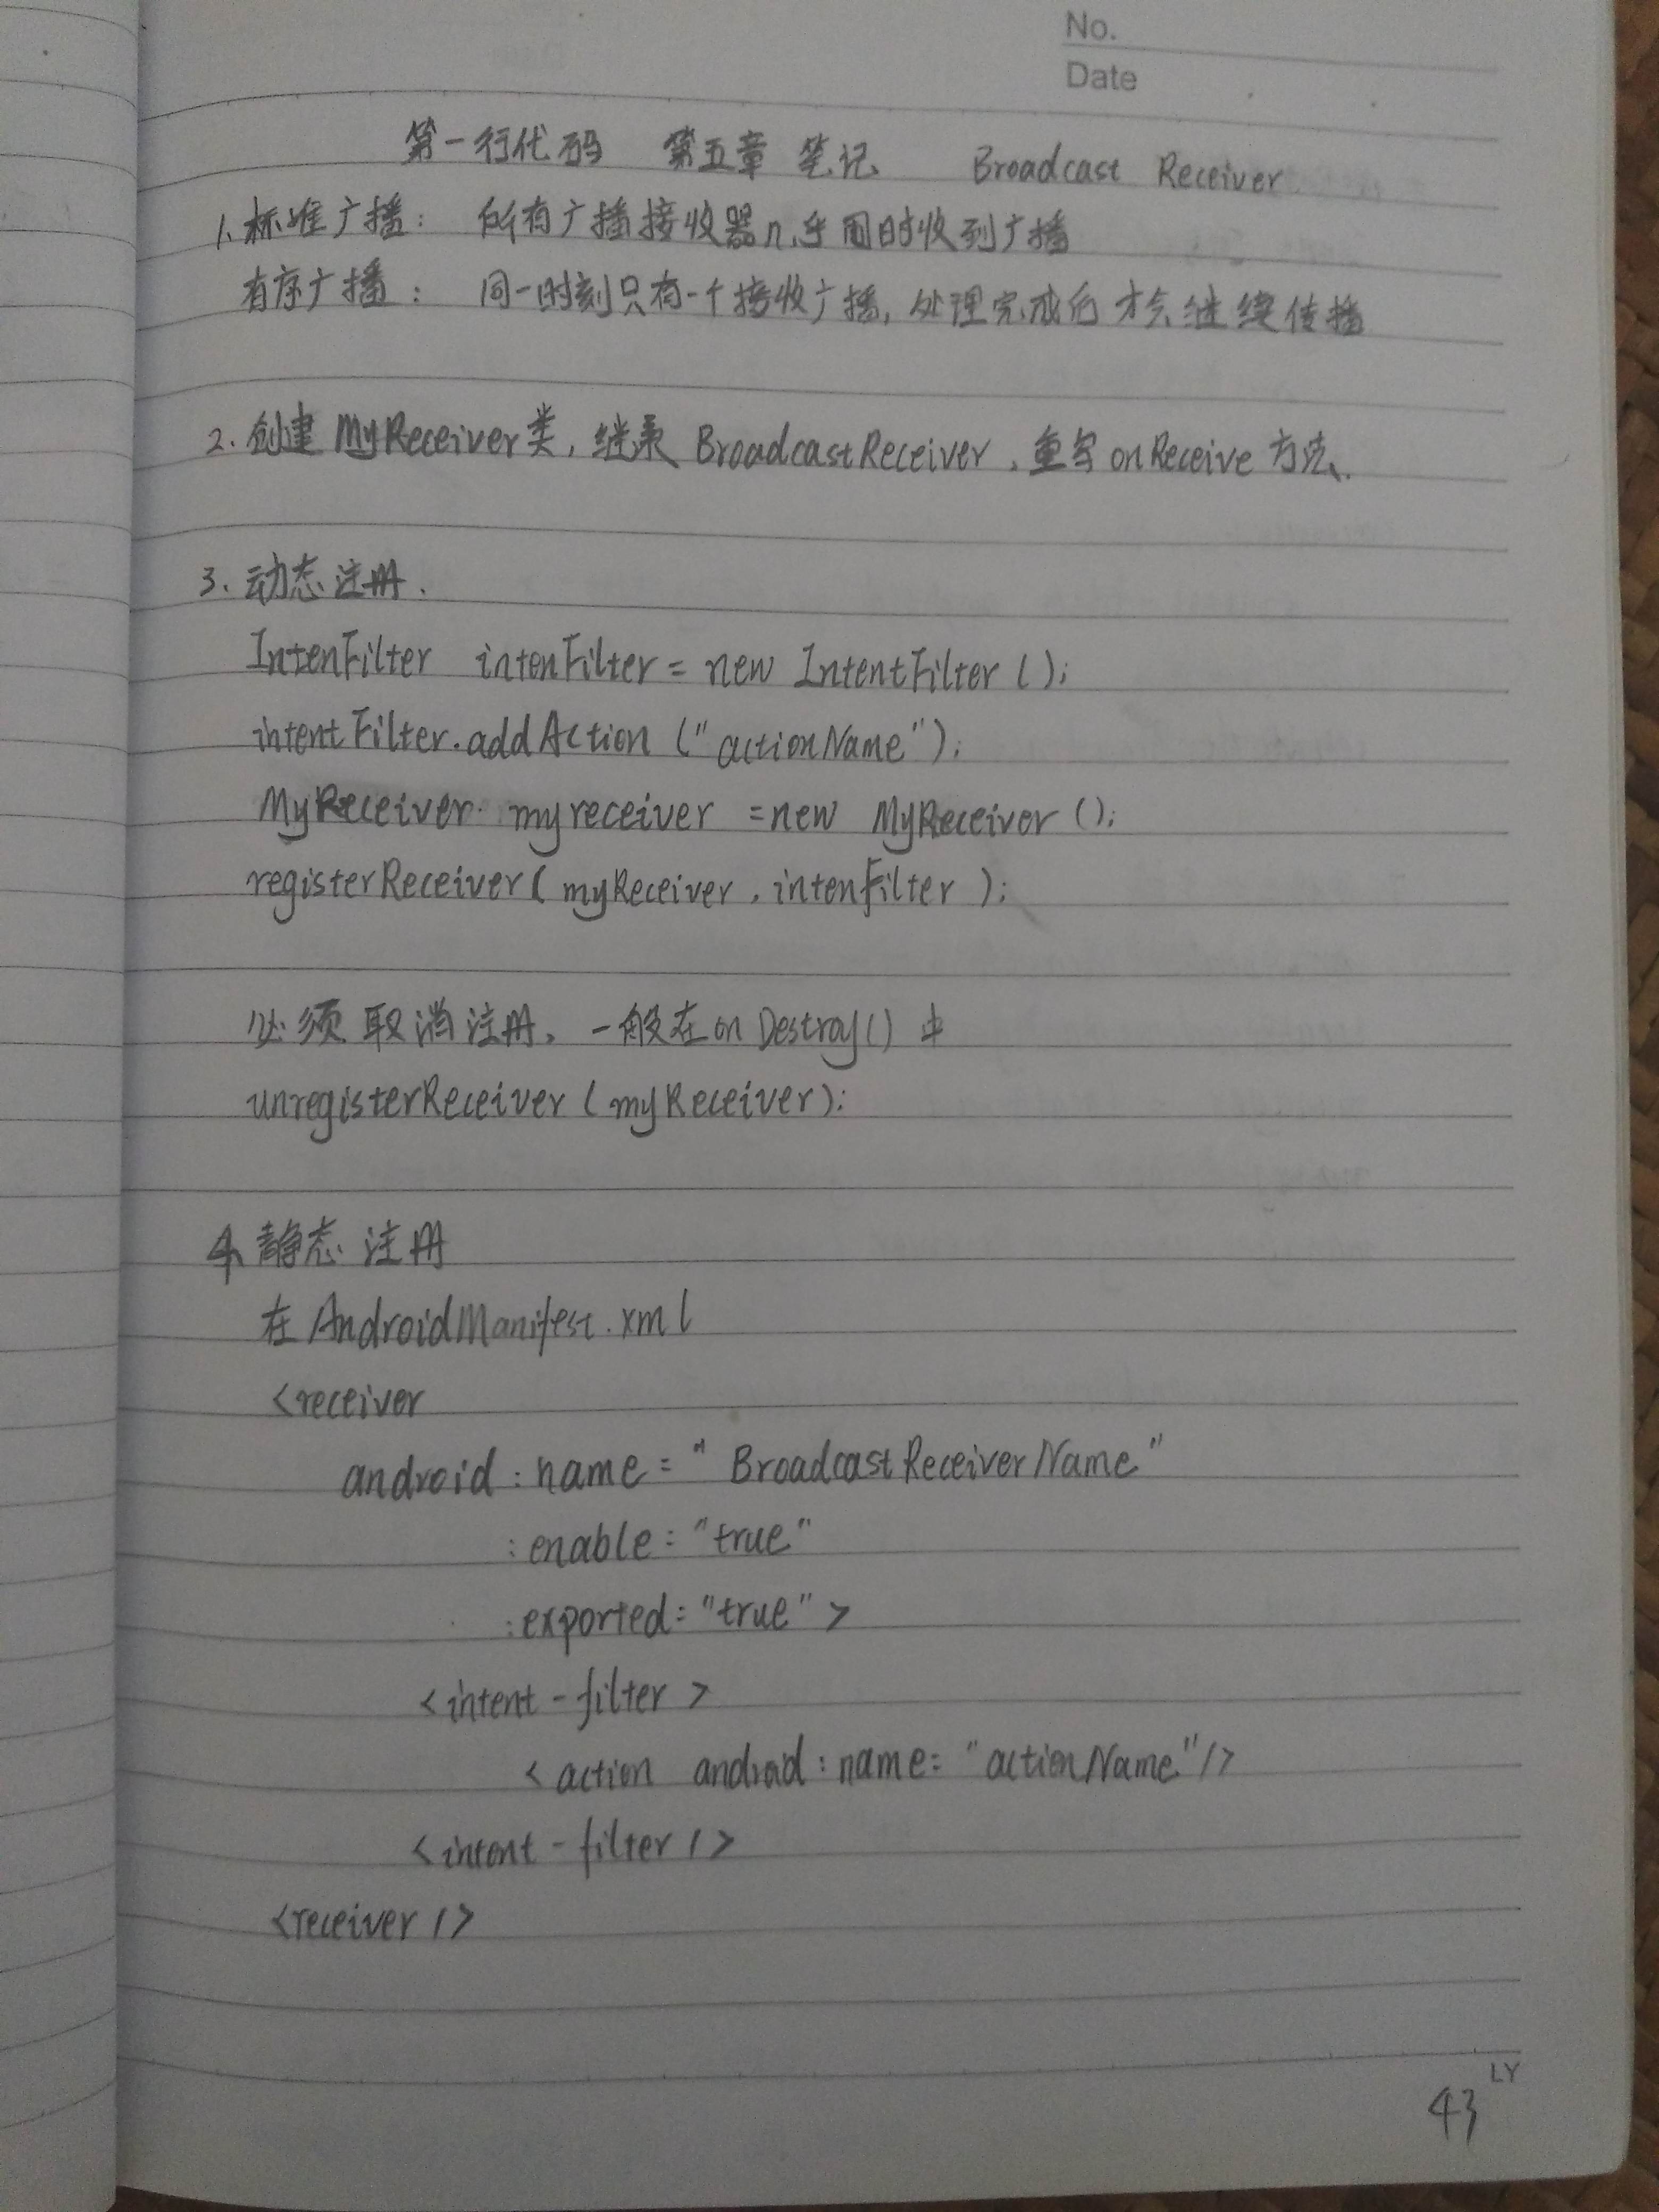 No.
Date
第一行代码 第五章 笔记 Broadcast Receiver
1、标准广播： 所有广播接收器几乎同时收到广播
有序广播： 同一时刻只有一个接收广播，处理完成后才会继续传播
2. 创建 MyReceiver类，继承 BroadcastReceiver，重写onReceive方法、
3、动态注册．
IntenFilter intenFilter = new IntentFilter ();
intentFilter.addAction ("actionName");
MyReceiver myreceiver =new MyReceiver ();
registerReceiver( myReceiver , intenFilter );
必须取消注册，一般在onDestroy() 中
unregisterReceiver ( myReceiver);
4、静态注册
在 AndroidManifest.xml
<receiver
android : name = " BroadcastReceiverName "
: enable = "true"
: exported = "true" >
<intent - filter >
< action android : name = "actionName" />
<intent - filter />
<receiver />
LY
43